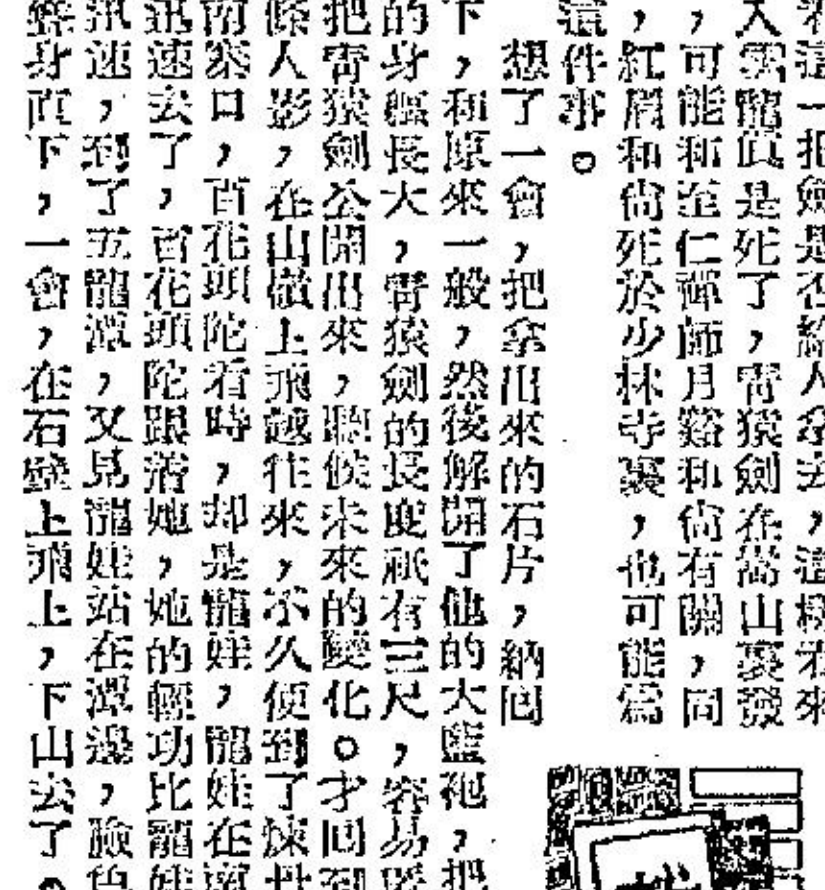 看這一把劍是否給人拿去，這樣看來
人雲龍真是死了，霄猿劍在嵩山裏發
，可能和至仁禪師月谿和尚有關，同
，紅眉和尚死於少林寺裏，也可能為
這件事。
想了一會，把拿出來的石片，納回
下，和原來一般，然後解開了他的大藍袍，把
的身軀長大，霄猿劍的長度祇有三尺，容易
把霄猿劍公開出來，聽候未來的變化。才回到
條人影，在山巒上飛越往來，不久便到了煉丹
南寨口，百花頭陀看時，却是龍娃，龍娃在
迅速去了，百花頭陀跟着她，她的輕功比龍娃
迅速，到了五龍潭，又見龍娃站在潭邊，臉色
聳身直下，一會，在石壁上飛上，下山去了。